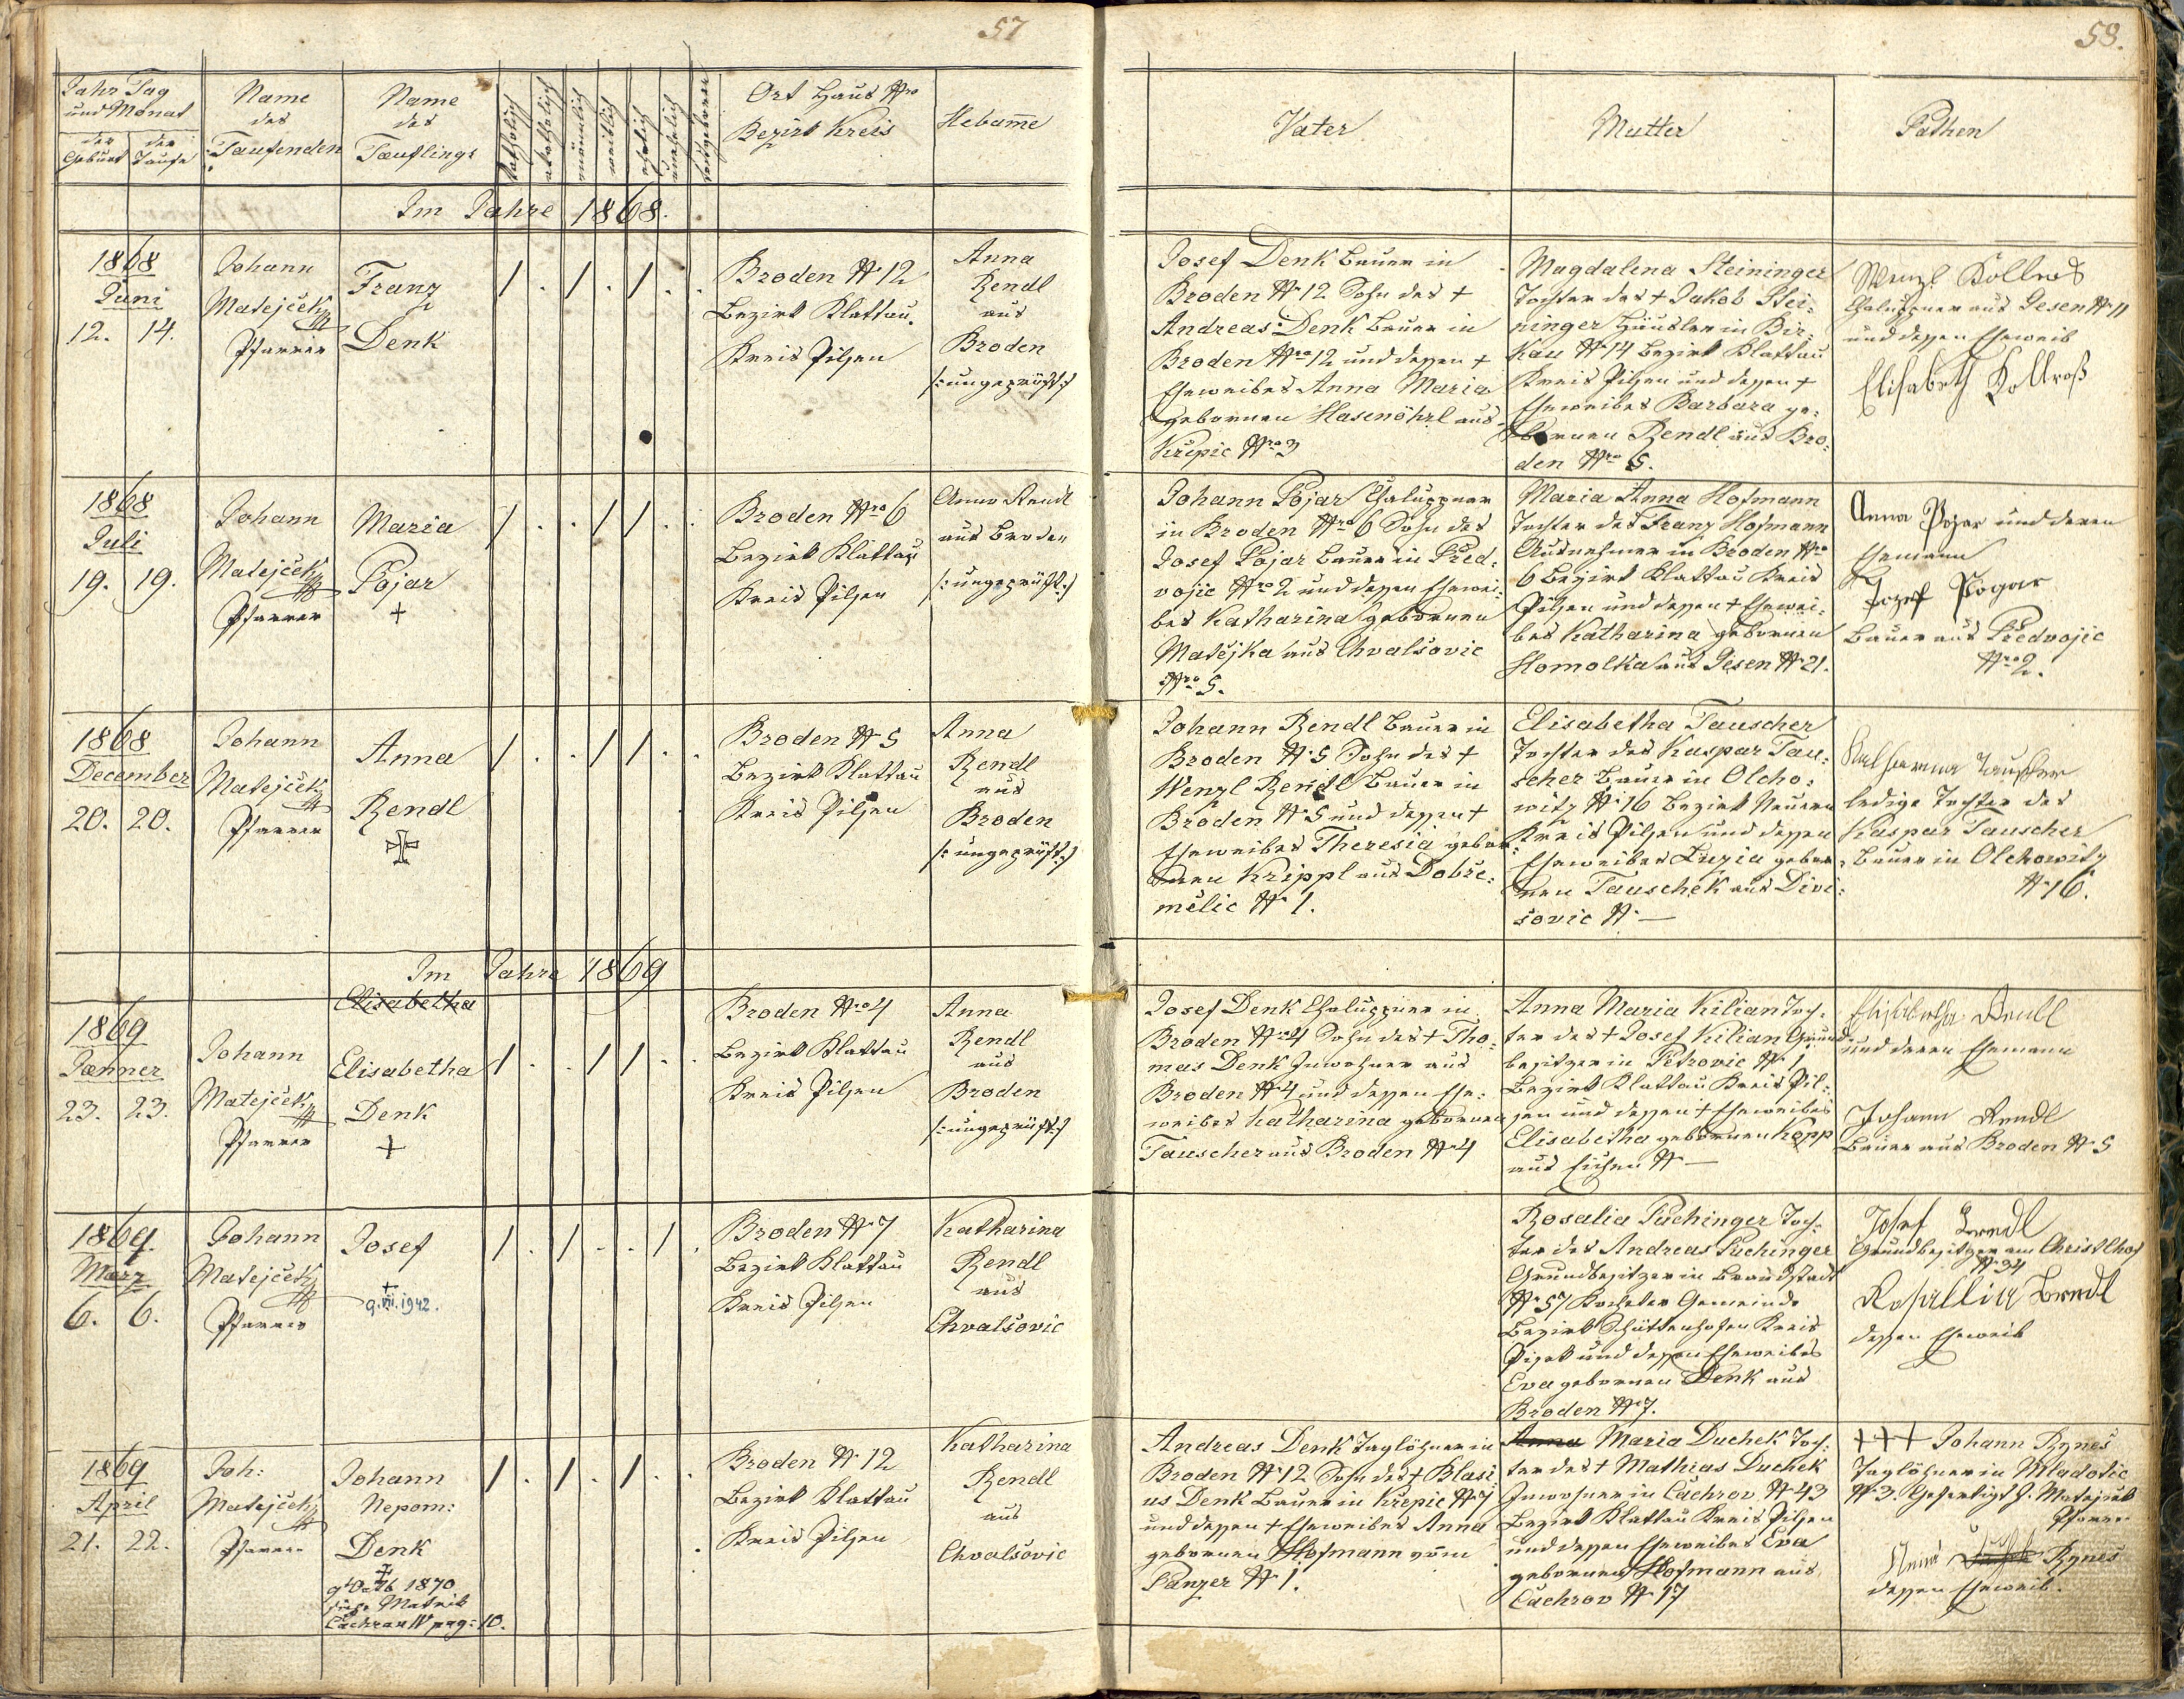 57
Jahr Tag
und Monat
der Geburt
der Taufe
Name
des
Taufenden
Name
des
Tæuflings
katholisch
akatholisch
männlich
weiblich
ehelich
unehelich
todtgeboren
Ort Haus Nro
Bezirk Kreis
Hebam̅e
Im Jahre 1868.
1868
Juni
12. 14.
Johann
Matejček
Pfarrer
Franz
Denk
/ . / . / . .
Broden N. 12
Bezirk Klattau.
Kreis Pilsen
Anna
Rendl
aus
Broden
/: ungeprüft :/
1868
Juli
19. 19.
Johann
Matejček
Pfarrer
Maria
Pojar
+
/ . . / / . .
Broden Nro 6
Bezirk Klattau
Kreis Pilsen
Anna Rendl
aus Broden
/: ungeprüft :/
1868
December
20. 20.
Johann
Matejček
Pfarrer
Anna
Rendl
/ . . / / . .
Broden N. 5
Bezirk Klattau
Kreis Pilsen
Anna
Rendl
aus
Broden
/: ungeprüft :/
Im Jahre 1869
Elisabetha
1869
Jænner
23. 23.
Johann
Matejček
Pfarrer
Elisabetha
Denk
+
/ . . / / . .
Broden Nro 4
Bezirk Klattau
Kreis Pilsen
Anna
Rendl
aus
Broden
/: ungeprüft :/
1869.
März
6. 6.
Johann
Matejček
Pfarrer
Josef
+
9. VII. 1942.
/ . / . . / .
Broden N. 7
Bezirk Klattau
Kreis Pilsen
Katharina
Rendl
aus
Chvalšovic
1869
April
21. 22.
Joh:
Matejček
Pfarrer
Johann
Nepom:
Denk
1870
siehe Matrik
Čachrau IV pag: 10.
/ . / . / . .
Broden N. 12
Bezirk Klattau
Kreis Pilsen
Katharina
Rendl
aus
Chvalšovic
58.
Vater
Mutter
Pathen
Josef Denk Bauer in
Broden N. 12 Sohn des +
Andreas Denk Bauer in
Broden Nro 12 und dessen +
Eheweibes Anna Maria
gebornen Hasenöhrl aus
Křepic Nro 3
Magdalena Steininger
Tochter des + Jakob Stei-
ninger Häusler in Bir-
kau N. 14 Bezirk Klattau
Kreis Pilsen und dessen +
Eheweibes Barbara ge-
bornen Rendl aus Bro-
den Nro 5.
Wenzl Kollros
Chaluppner aus Jesen N. 11
und dessen Eheweib
Elisabeth Kollroß
Johann Pojar Chaluppner
in Broden Nro 6 Sohn des
Josef Pojar Bauer in Před-
vojic Nro 2 und dessen Ehewei-
bes Katharina gebornen
Matějka aus Chvalšovic
Nro 5.
Maria Anna Hofmann
Tochter des Franz Hofmann
Ausnehmer in Broden Nro
6 Bezirk Klattau Kreis
Pilsen und dessen + Ehewei-
bes Katharina gebornen
Homolka aus Jesen N. 21.
Anna Pojar und deren
Ehemann
Jozef Pogar
Bauer aus Předvojic
Nro 2.
Johann Rendl Bauer in
Broden N. 5 Sohn des +
Wenzl Rendl Bauer in
Broden N. 5 und dessen +
Eheweibes Theresia gebor-
nen Krippl aus Dobře-
mělic N. 1.
Elisabetha Tauscher
Tochter des Kaspar Tau-
scher Bauer in Olcho-
witz N. 16 Bezirk Neuern
Kreis Pilsen und dessen
Eheweibes Luzia gebor-
nen Tauschek aus Divi-
šovic N. —
Katharina Tauscher
ledige Tochter des
Kaspar Tauscher
Bauer in Olchowitz
N. 16.
Josef Denk Chaluppner in
Broden Nro 4 Sohn des + Tho-
mas Denk Inwohner aus
Broden N. 4 und dessen Ehe-
weibes Katharina gebornen
Tauscher aus Broden N. 4
Anna Maria Kilian Toch-
ter des + Josef Kilian Grund-
besitzer in Petrovic N. 1
Bezirk Klattau Kreis Pil-
sen und dessen + Eheweibes
Elisabetha gebornen Kopp
aus Eisen N. —
Elisabetha Rendl
und deren Ehemann
Johann Rendl
Bauer aus Broden N. 5
Rosalia Puchinger Toch-
ter des Andreas Puchinger
Grundbesitzer in Brandstadt
N. 57 Kocheter Gemeinde
Bezirk Schüttenhofen Kreis
Pisek und dessen Eheweibes
Eva gebornen Denk aus
Broden N. 7.
Josef Brendl
Grundbesitzer am Christlhof
N. 34
Rosallia Brendl
dessen Eheweib
Andreas Denk Taglöhner in
Broden N. 12 Sohn des + Blasi
us Denk Bauer in Křepic N. 7
und dessen + Eheweibes Anna
gebornen Hofmann vom
Panzer N. 1.
Anna Maria Duchek Toch-
ter des + Mathias Duchek
Inwohner in Čachrov N. 43
Bezirk Klattau Kreis Pilsen
und dessen Eheweibes Eva
gebornen Hofmann aus
Čachrov N. 17
+++ Johann Rynes
Taglöhner in Mladotic
N. 3. Gefertigt J. Matejček
Pfarrer
Rynes
dessen Eheweib.